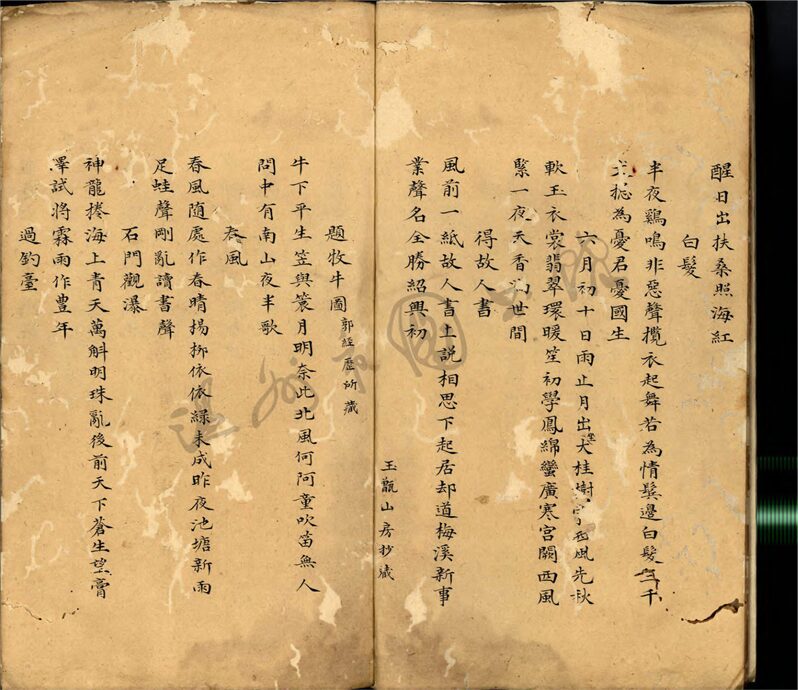 醒日出扶桑照海紅
白髮
半夜鷄鳴非惡聲攬衣起舞若為情鬓邊白髮三千
丈捴為憂君憂國生
六月初十日雨止月出坐大桂樹下西風先秋
軟玉衣裳翡翠環暖笙初學鳳綿蠻廣寒宮闕西風
緊一夜天香滿世間
得故人書
風前一紙故人書上說相思下起居却道梅溪新事
業聲名全勝紹興初
玉甑山房抄藏
題牧牛圖 郭經歷所藏
牛下平生笠與簑月明奈此北風何阿童吹笛無人
問中有南山夜半歌
春風
春風隨處作春晴楊柳依依綠未成昨夜池塘新雨
足蛙聲剛亂讀書聲
石門觀瀑
神龍捲海上青天萬斛明珠亂後前天下蒼生望膏
澤試將霖雨作豊年
過釣臺